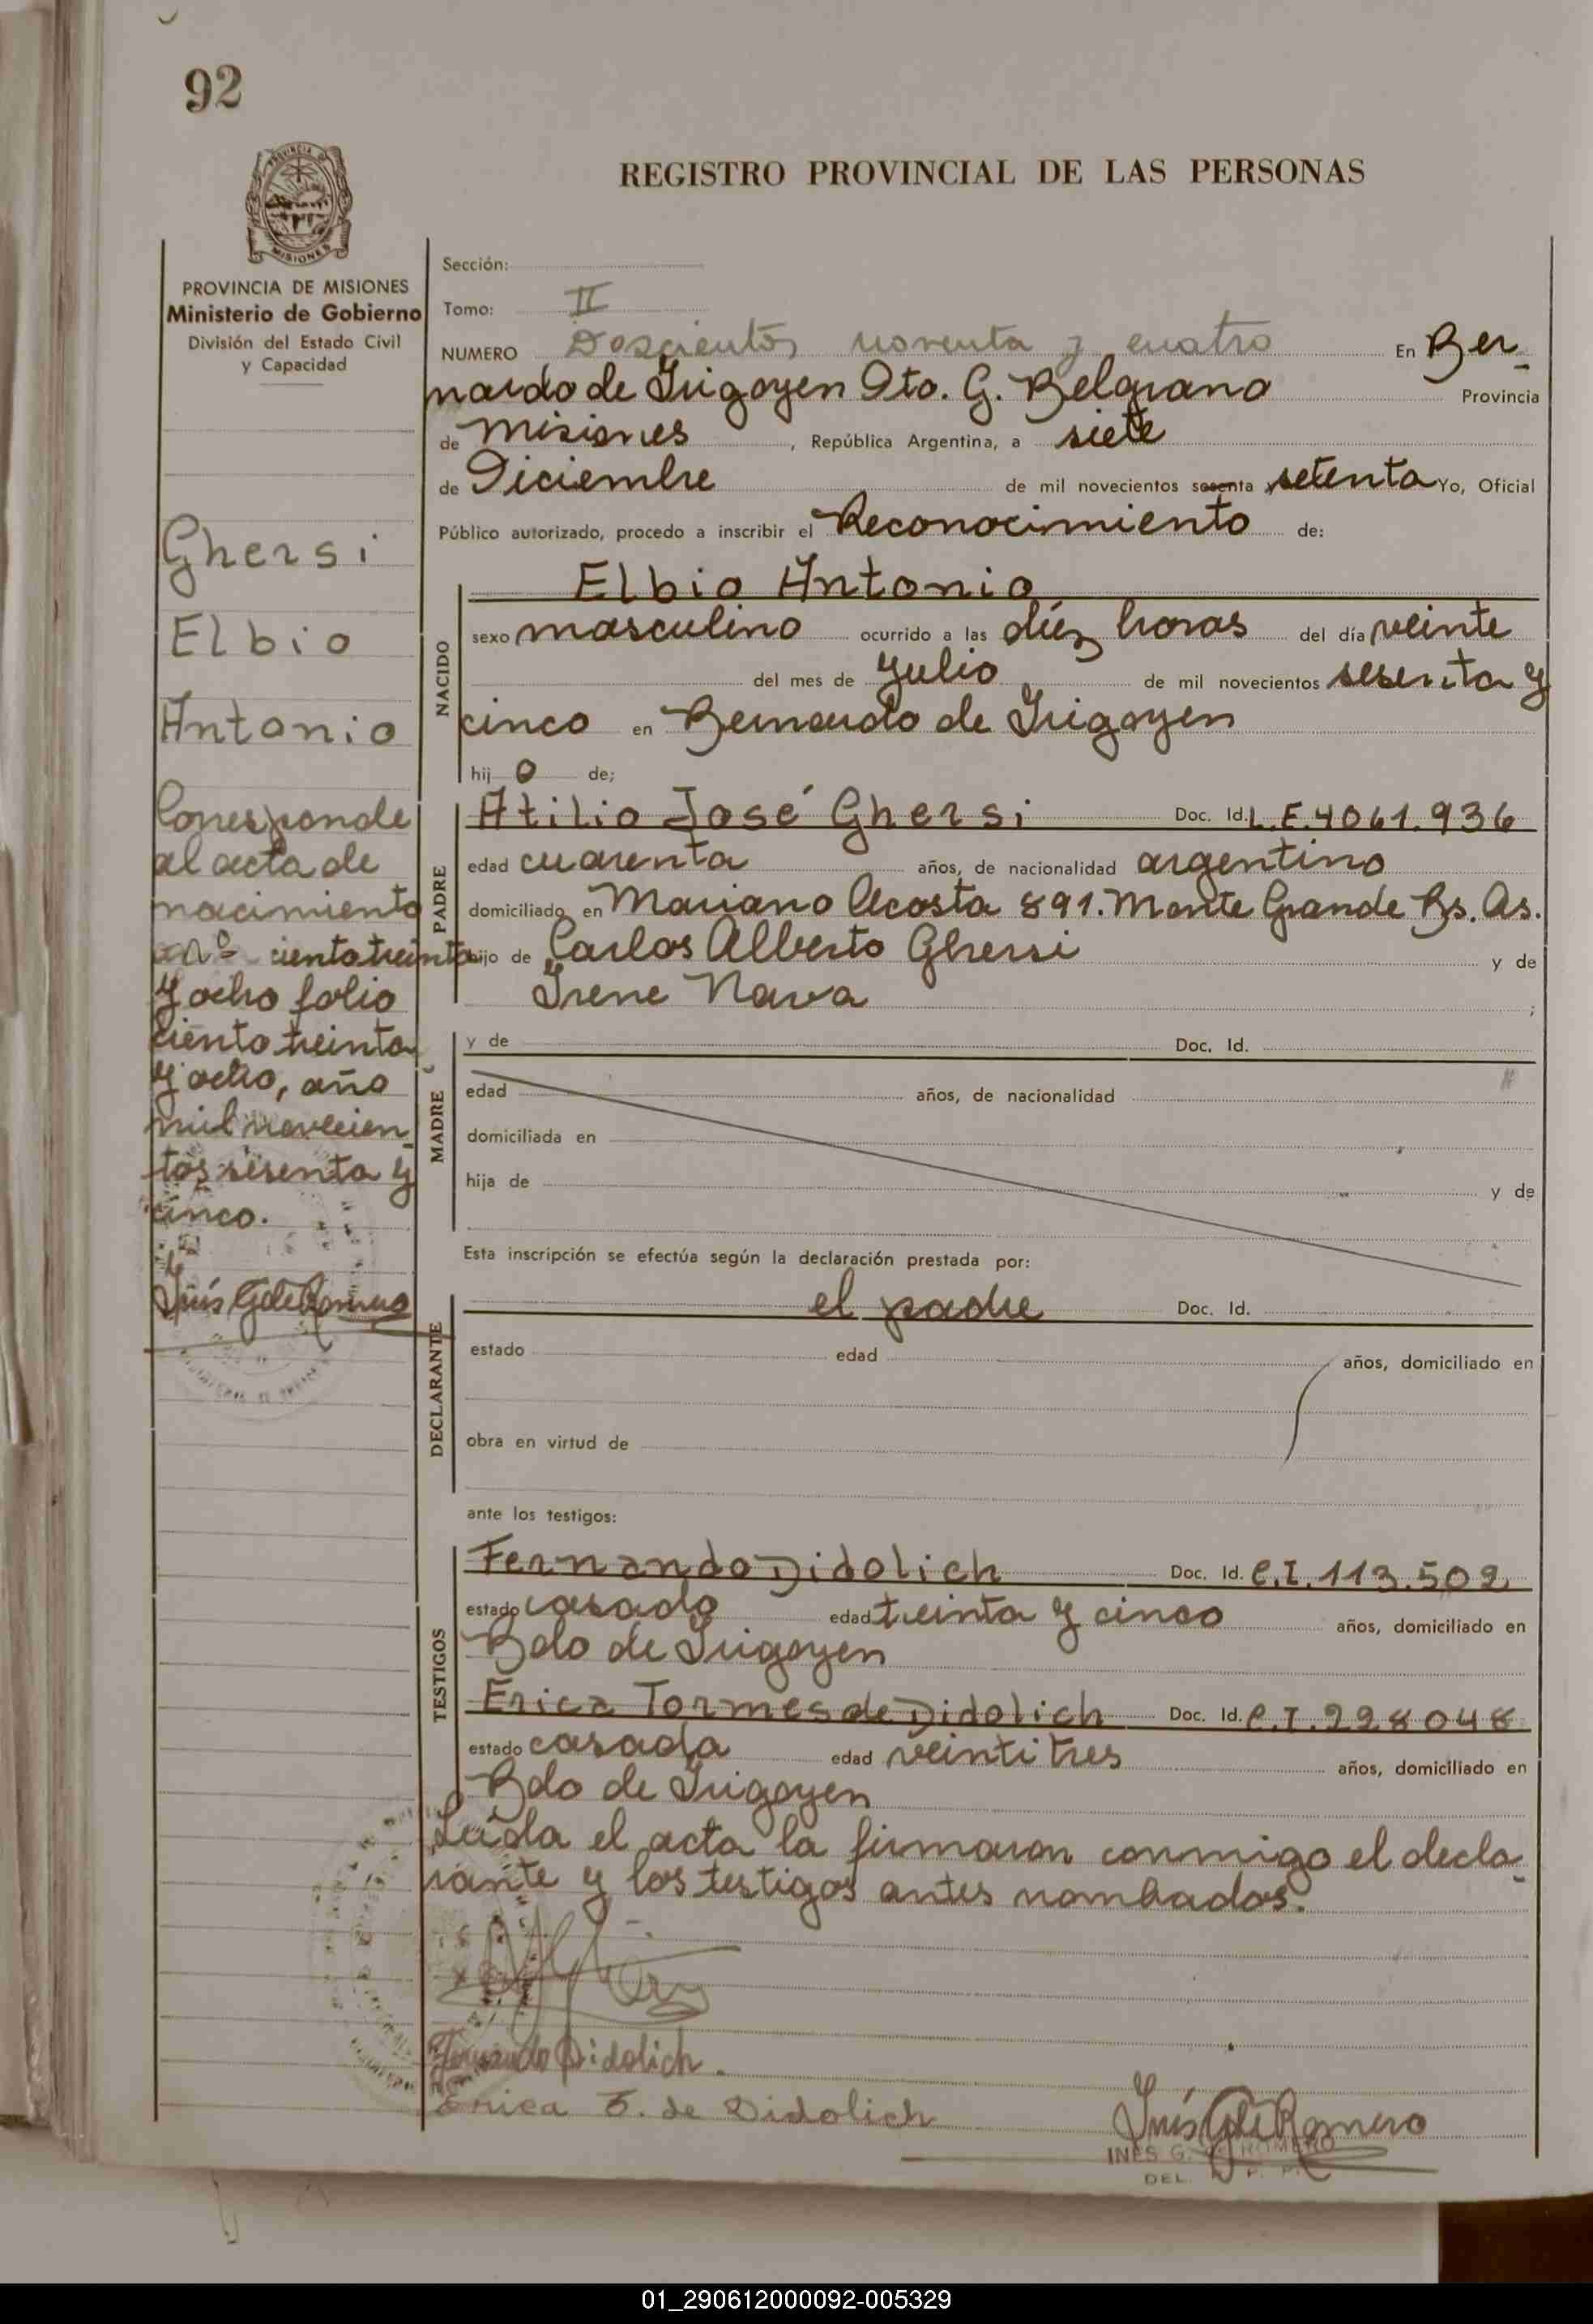 92
REGISTRO PROVINCIAL DE LAS PERSONAS
PROVINCIA DE MISIONES
Ministerio de Gobierno
División del Estado Civil
y Capacidad
Ghersi
Elbio
Antonio
Corresponde
al acta de
nacimiento
nº ciento treinta
y ocho folio
ciento treinta
y ocho, año
mil novecien
tos sesenta y
cinco.
Inés G de Romero
Sección:
Tomo: II
NUMERO Doscientos noventa y cuatro En Ber-
nardo de Irigoyen Dto. G. Belgrano Provincia
de Misiones, República Argentina, a siete
de Diciembre de mil novecientos sesenta y setenta Yo, Oficial
Público autorizado, procedo a inscribir el Reconocimiento de:
NACIDO
Elbio Antonio
sexo masculino ocurrido a las diez horas del día veinte
del mes de Julio de mil novecientos sesenta y
cinco en Bernardo de Irigoyen
hijo de;
PADRE
Atilio José Ghersi Doc. Id. L.E. 4061.936
edad cuarenta años, de nacionalidad argentino
domiciliado en Mariano Acosta 891. Monte Grande Bs. As.
hijo de Carlos Alberto Ghersi y de
Irene Nava ;
MADRE
y de Doc. Id.
edad años, de nacionalidad
domiciliada en
hija de y de
Esta inscripción se efectúa según la declaración prestada por:
DECLARANTE
el padre Doc. Id.
estado edad años, domiciliado en
obra en virtud de
ante los testigos:
TESTIGOS
Fernando Didolich Doc. Id. C.I. 113.502
estado casado edad treinta y cinco años, domiciliado en
Bdo de Irigoyen
Erica Tormes de Didolich Doc. Id. C.I. 228048
estado casada edad veintitres años, domiciliado en
Bdo de Irigoyen
Leída el acta la firmaron conmigo el decla-
rante y los testigos antes nombrados.
Fernando Didolich.
Erica T. de Didolich
Inés G de Romero
INES G. DE ROMERO
DEL. R. P. P.
01_290612000092-005329